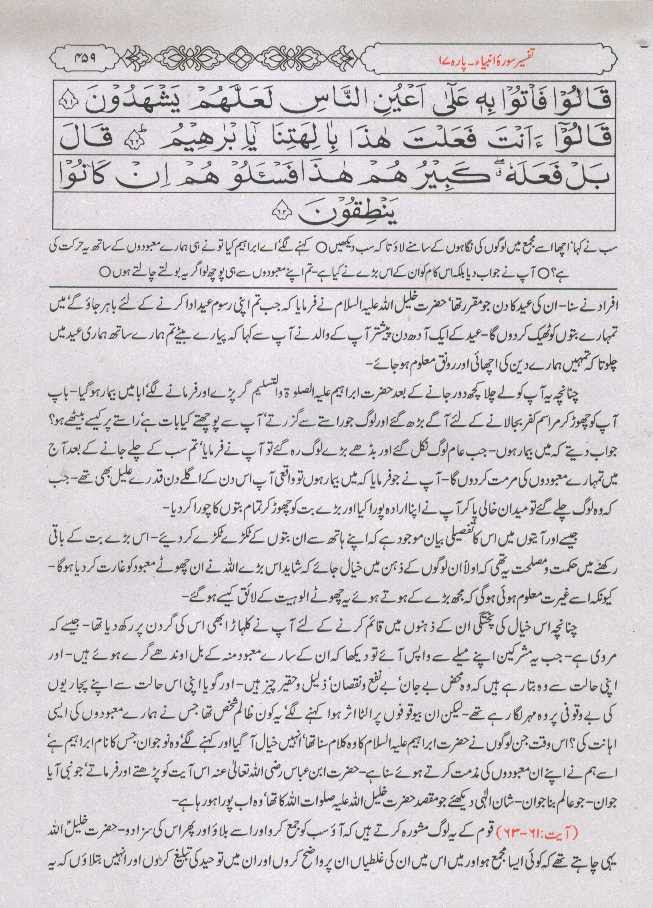 تفسیر سورۂ انبیاء۔ پارہ ۱۷
۴۵۹
قَالُوْا فَاْتُوْا بِهٖ عَلٰٓى اَعْيُنِ النَّاسِ لَعَلَّهُمْ يَشْهَدُوْنَ ۶۱
قَالُوْٓا ءَاَنْتَ فَعَلْتَ هٰذَا بِاٰلِهَتِنَا يٰٓاِبْرٰهِيْمُ ۶۲ قَالَ
بَلْ فَعَلَهٗ ۖ كَبِيْرُهُمْ هٰذَا فَسْـَٔلُوْهُمْ اِنْ كَانُوْا
يَنْطِقُوْنَ ۶۳
سب نے کہا' اچھا اسے مجمع میں لوگوں کی نگاہوں کے سامنے لاؤ تا کہ سب دیکھیں ○ کہنے لگے' اے ابراہیم کیا تو نے ہی ہمارے معبودوں کے ساتھ یہ حرکت کی
ہے؟ ○ آپ نے جواب دیا بلکہ اس کام کو ان کے اس بڑے نے کیا ہے۔ تم اپنے معبودوں سے ہی پوچھ لو اگر یہ بولتے چالتے ہوں ○
افراد نے سنا۔ ان کی عید کا دن جو مقرر تھا' حضرت خلیل اللہ علیہ السلام نے فرمایا کہ جب تم اپنی رسوم عید ادا کرنے کے لئے باہر جاؤ گے' میں
تمہارے بتوں کو ٹھیک کر دوں گا۔ عید کے ایک آدھ دن پیشتر آپ کے والد نے آپ سے کہا کہ پیارے بیٹے تم ہمارے ساتھ ہماری عید میں
چلو تا کہ تمہیں ہمارے دین کی اچھائی اور رونق معلوم ہو جائے۔
چنانچہ یہ آپ کو لے چلا' کچھ دور جانے کے بعد حضرت ابراہیم علیہ الصلوۃ والتسلیم گر پڑے اور فرمانے لگے' ابا میں بیمار ہو گیا۔ باپ
آپ کو چھوڑ کر مراسم کفر بجا لانے کے لئے آگے بڑھ گئے اور لوگ جو راستے سے گزرتے' آپ سے پوچھتے' کیا بات ہے' راستے پر کیسے بیٹھے ہو؟
جواب دیتے کہ میں بیمار ہوں۔ جب عام لوگ نکل گئے اور بڈھے بڑے لوگ رہ گئے تو آپ نے فرمایا' تم سب کے چلے جانے کے بعد آج
میں تمہارے معبودوں کی مرمت کر دوں گا۔ آپ نے جو فرمایا کہ میں بیمار ہوں تو واقعی آپ اس دن کے اگلے دن قدرے علیل بھی تھے۔ جب
کہ وہ لوگ چلے گئے تو میدان خالی پا کر آپ نے اپنا ارادہ پورا کیا اور بڑے بت کو چھوڑ کر تمام بتوں کا چورا کر دیا۔
جیسے اور آیتوں میں اس کا تفصیلی بیان موجود ہے کہ اپنے ہاتھ سے ان بتوں کے ٹکڑے ٹکڑے کر دیئے۔ اس بڑے بت کے باقی
رکھنے میں حکمت و مصلحت یہ تھی کہ اولاً ان لوگوں کے ذہن میں خیال جائے کہ شاید اس بڑے اللہ نے ان چھوٹے معبود کو غارت کر دیا ہو گا۔
کیونکہ اسے غیرت معلوم ہوئی ہو گی کہ مجھ بڑے کے ہوتے ہوئے یہ چھوٹے الوہیت کے لائق کیسے ہو گئے۔
چنانچہ اس خیال کی پختگی ان کے ذہنوں میں قائم کرنے کے لئے آپ نے کلہاڑا بھی اس کی گردن پر رکھ دیا تھا۔ جیسے کہ
مروی ہے۔ جب یہ مشرکین اپنے میلے سے واپس آئے تو دیکھا کہ ان کے سارے معبود منہ کے بل اوندھے گرے ہوئے ہیں۔ اور
اپنی حالت سے وہ بتا رہے ہیں کہ وہ محض بے جان' بے نفع و نقصان' ذلیل و حقیر چیز ہیں۔ اور گویا اپنی اس حالت سے اپنے پجاریوں
کی بے وقوفی پر وہ مہر لگا رہے تھے۔ لیکن ان بیوقوفوں پر الٹا اثر ہوا' کہنے لگے' یہ کون ظالم شخص تھا جس نے ہمارے معبودوں کی ایسی
اہانت کی؟ اس وقت جن لوگوں نے حضرت ابراہیم علیہ السلام کا وہ کلام سنا تھا' انہیں خیال آ گیا اور کہنے لگے' وہ نوجوان جس کا نام ابراہیم ہے'
اسے ہم نے اپنے ان معبودوں کی مذمت کرتے ہوئے سنا ہے۔ حضرت ابن عباس رضی اللہ تعالیٰ عنہ اس آیت کو پڑھتے اور فرماتے' جو نبی آیا
جوان۔ جو عالم بنا جوان۔ شان الٰہی دیکھئے جو مقصد حضرت خلیل اللہ علیہ صلوات اللہ کا تھا' وہ اب پورا ہو رہا ہے۔
(آیت: ۶۱-۶۳) قوم کے یہ لوگ مشورہ کرتے ہیں کہ آؤ سب کو جمع کرو اور اسے بلاؤ اور پھر اس کی سزا دو۔ حضرت خلیل اللہ
یہی چاہتے تھے کہ کوئی ایسا مجمع ہو اور میں اس میں ان کی غلطیاں ان پر واضح کروں اور ان میں توحید کی تبلیغ کروں اور انہیں بتلاؤں کہ یہ